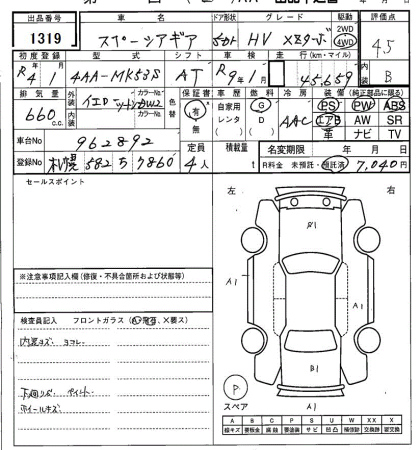 出品番号 車名 ドア形状 グレード 駆動 評価点
1319 スペーシアギア 5ドア HV XZターボ 2WD 4WD 4.5
初度登録 型式 シフト 車検 走行(km・マイル) 内装
R4 1 4AA-MK53S AT R9年1月 45,659 B
排気量 外装 カラーNo. 色替 保証書 車歴 燃料 冷房 装備(純正部品に限る)
660c.c. イエロー 内装 カラーNo. 有・無 自家用 レンタ G D AAC PS PW ABS
エアB AW SR
革 ナビ TV
車台No 962892 定員 積載量 名変期限 年 月 日
登録No 札幌 582 ち 7860 4人 t R料金 未預託・預託済 7,040円
セールスポイント
左 右
B1
A1 A1
※注意事項記入欄(修復・不具合箇所および状態等)
検査員記入 フロントガラス
内装キズ ヨゴレ
B1
下回り ペイント
ホイールキズ
P
スペア A1
A B C P S U W X XX
線キズ 要板金 腐蝕 要塗装 サビ 凹凸 補修跡 交換跡